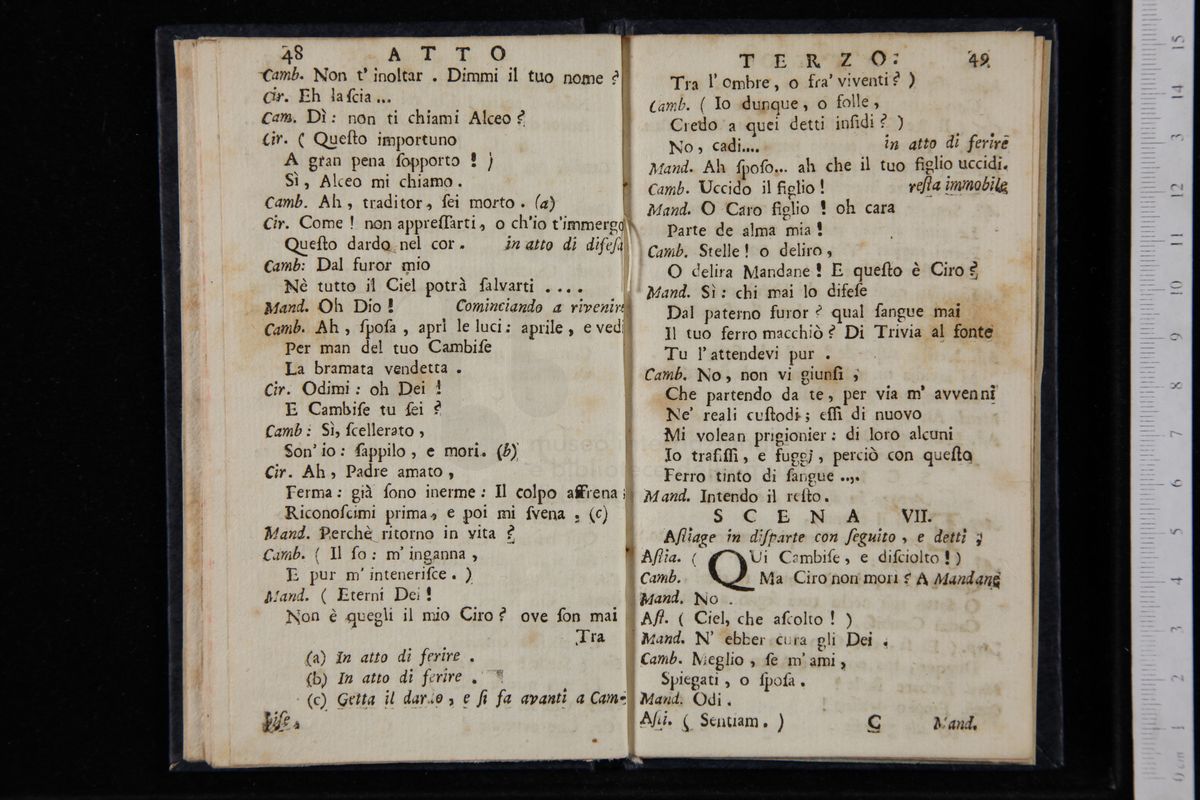 48 ATTO
Camb. Non t' inoltar . Dimmi il tuo nome ?
Cir. Eh laſcia ...
Cam. Dì : non ti chiami Alceo ?
Cir. ( Queſto importuno
A gran pena ſopporto ! )
Sì , Alceo mi chiamo .
Camb. Ah , traditor , ſei morto . (a)
Cir. Come ! non appreſſarti , o ch'io t'immergo
Queſto dardo nel cor . in atto di difeſa
Camb: Dal furor mio
Nè tutto il Ciel potrà ſalvarti ....
Mand. Oh Dio ! Cominciando a rivenire
Camb. Ah , ſpoſa , aprì le luci : aprile , e vedi
Per man del tuo Cambiſe
La bramata vendetta .
Cir. Odimi : oh Dei !
E Cambiſe tu ſei ?
Camb : Sì, ſcellerato ,
Son' io : ſappilo , e mori. (b)
Cir. Ah , Padre amato ,
Ferma : già ſono inerme : Il colpo affrena ;
Riconoſcimi prima , e poi mi ſvena . (c)
Mand. Perchè ritorno in vita ?
Camb. ( Il ſo : m' inganna ,
E pur m' inteneriſce . )
Mand. ( Eterni Dei !
Non è quegli il mio Ciro ? ove ſon mai
Tra
(a) In atto di ferire .
(b) In atto di ferire .
(c) Getta il dardo , e ſi fa avanti a Cam-
biſe.
TERZO. 49
Tra l' ombre , o fra' viventi ? )
Camb. ( Io dunque , o folle ,
Credo a quei detti infidi ? )
No , cadi.... in atto di ferire
Mand. Ah ſpoſo... ah che il tuo figlio uccidi.
Camb. Uccido il figlio ! reſta immobile
Mand. O Caro figlio ! oh cara
Parte de alma mia !
Camb. Stelle ! o deliro ,
O delira Mandane ! E queſto è Ciro ?
Mand. Sì : chi mai lo difeſe
Dal paterno furor ? qual ſangue mai
Il tuo ferro macchiò ? Di Trivia al fonte
Tu l' attendevi pur .
Camb. No , non vi giunſi ;
Che partendo da te , per via m' avvenni
Ne' reali cuſtodi ; eſſi di nuovo
Mi volean prigionier : di loro alcuni
Io trafiſſi , e fuggj , perciò con queſto
Ferro tinto di ſangue ....
Mand. Intendo il reſto .
SCENA VII.
Aſtiage in diſparte con ſeguito , e detti ;
Aſtia. ( QUi Cambiſe , e diſciolto ! )
Camb. Ma Ciro non morì ? A Mandane
Mand. No .
Aſt. ( Ciel, che aſcolto ! )
Mand. N' ebber cura gli Dei .
Camb. Meglio , ſe m' ami ,
Spiegati , o ſpoſa .
Mand. Odi .
Aſti. ( Sentiam . ) C Mand.